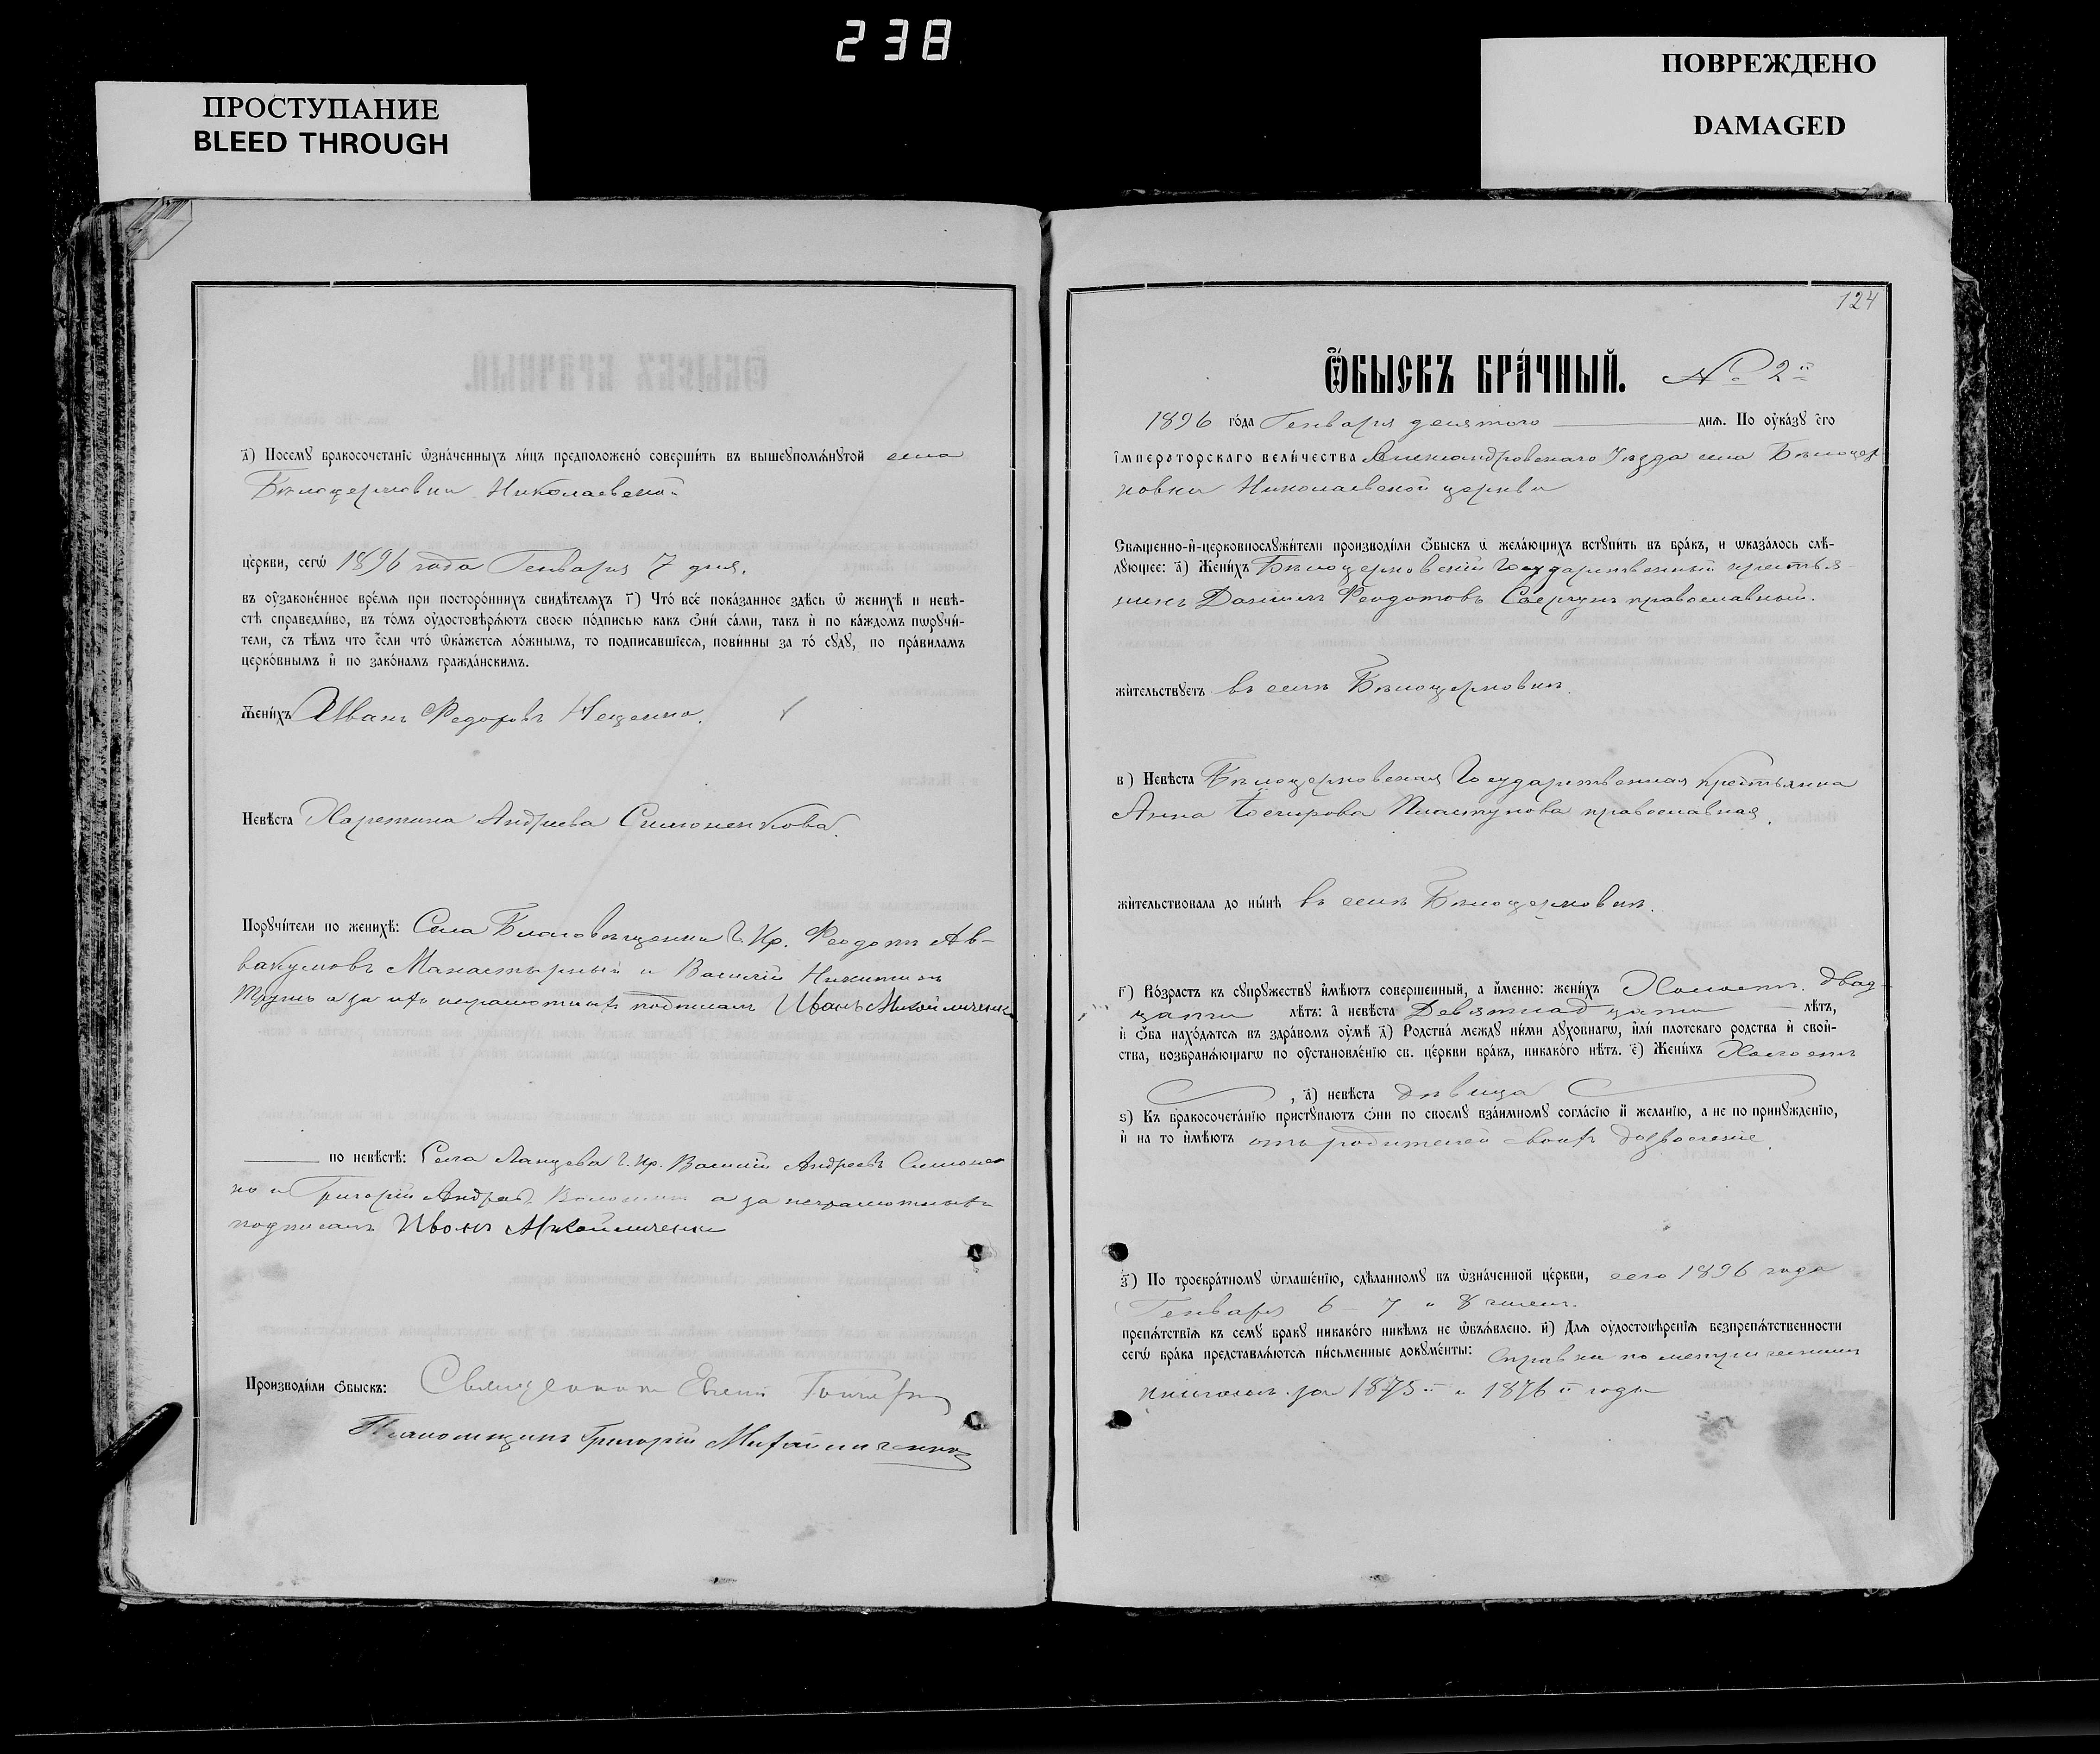 238
ПРОСТУПАНИЕ
BLEED THROUGH
ПОВРЕЖДЕНО
DAMAGED
д҃) Посемꙋ бракосочетанїе ѡзна́ченныхъ ли́цъ предположено́ соверши́ть въ вышеꙋпомѧ́нꙋтой села
Бѣлоцерковки Николаевской
це́ркви, сегѡ̀ 1896 года Генваря 7 дня.
въ оу҆законе́нное вре́мѧ при посторо́ннихъ свидѣ́телѧхъ г҃) Что́ все́ пока́занное здѣ́сь ѡ женихѣ̀ и невѣ́-
стѣ справедли́во, въ то́мъ оу҆достовѣрѧ́ютъ своею по́дписью какъ ѻни́ са́ми, такъ и҆ по ка́ждомъ пѡрꙋчи́-
тели, съ тѣ́мъ что є҆́сли что́ ѡка́жетсѧ ло́жнымъ, то подписавшїесѧ, пови́нны за то́ сꙋдꙋ̀, по пра́виламъ
церко́внымъ и҆ по зако́намъ гражда́нскимъ.
Жени́хъ Иванъ Федоровъ Нещенко.
Невѣ́ста Харетина Андреева Симоненкова.
Порꙋчи́тели по женихѣ̀: Села Благовѣщенки Г. Кр. Феодотъ Ав-
вакумовъ Манастырный и Василій Никитинъ
а за ихъ неграмотныхъ подписалъ Иванъ Михайличенко
по невѣ́стѣ: Села Г. Кр. Василій Андреевъ Симонен
ко и Григорій Андреевъ а за неграмотныхъ
подписалъ Иванъ Михайличенко
Производи́ли ѻбыскъ: Священникъ Евгеній
Псаломщикъ Григорій Михайличенко
124
Ѻ҆БЫСКЪ БРА́ЧНЫЙ. № 2й
1896 го́да Генваря девятого днѧ. По оу҆ка́зꙋ є҆гѡ
і҆мператорскаго вели́чества Александровскаго Уѣзда села Бѣлоцер
ковки Николаевской церкви
Свѧщенно-и҆-церковнослꙋжи́тели производи́ли ѻ҆́быскъ ѡ҆ жела́ющихъ встꙋпи́ть въ бра́къ, и ѡказа́лось слѣ́-
дꙋющее: а҃) Жени́хъ Бѣлоцерковскій Государственный крестья-
нинъ Даніилъ Феодотовъ Сверчунъ православный.
жи́тельствꙋетъ въ селѣ Бѣлоцерковкѣ.
в҃) Невѣ́ста Бѣлоцерковская Государственная крестьянка
Анна Пластунова православная.
жи́тельствовала до ны́нѣ въ селѣ Бѣлоцерковкѣ.
г҃) Во́зрастъ къ сꙋпрꙋжествꙋ и҆мѣ́ютъ соверше́нный, а и҆́менно: жени́хъ Холостъ. двад-
цати лѣ́тъ: а҆ невѣ́ста Девятнадцати лѣ́тъ,
и҆ ѻ҆́ба нахо́дѧтсѧ въ здра́вомъ оу҆мѣ̀ д҃) Родства̀ между ни́ми дꙋхо́внагѡ, и҆лѝ пло́тскаго родства̀ и҆ свой-
ства̀, возбранѧ́ющагѡ по оу҆становле́нїю св. це́ркви бра́къ, никако́го нѣ́тъ. є҃) Жени́хъ Холостъ
, а҃) невѣ́ста дѣвица
ѕ҃) Къ бракосочета́нїю пристꙋпа́ютъ ѻни̂ по своемꙋ̀ взаи́мномꙋ согла́сїю и҆ жела́нїю, а не по принꙋжде́нїю,
и҆ на то и҆мѣ́ютъ отъ родителей своихъ дозволеніе.
з҃) По троекра́тномꙋ ѡ҆глаше́нїю, сдѣ́ланномꙋ въ ѡ҆зна́ченной це́ркви, сего 1896 года
Генваря 6 - 7 и 8 чиселъ.
препѧ́тствїѧ къ семꙋ̀ бра́кꙋ никако́го никѣ́мъ не ѡ҆бъѧ́влено. и҃) Длѧ оу҆достовѣре́нїѧ безпрепѧ́тственности
сегѡ̀ бра́ка представлѧ́ютсѧ пи́сьменные докꙋме́нты: Справки по метрическимъ
книгамъ за 1875й и 1876й годы